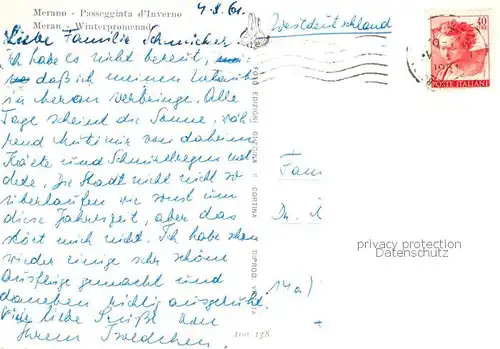 Merano - Passeggiata d'Inverno
Meran - Winterpromenade
4.3.61.
Westdeutschland
Liebe Familie Schmicker!
Ich habe es nicht bereut,
daß ich meinen Urlaub
in Meran verbringe. Alle
Tage scheint die Sonne, wäh
rend Mutti mir von daheim
Kälte und Schneeregen mel
dete. Die Stadt nicht so
überlaufen wie sonst um
diese Jahreszeit, aber das
stört mich nicht. Ich habe schon
wieder einige sehr schöne
Ausflüge gemacht und
daneben richtig ausgeruht.
Viele liebe Grüße von
Ihrem
100 138
FOTO EDIZIONI GHEDINA - CORTINA
RIPROD. VIETATA
40
POSTE ITALIANE
Fam
Dr.
14a)
privacy protection
Datenschutz